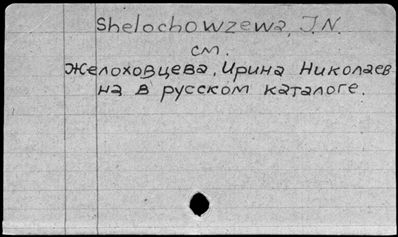 Shelochowzewa, I.N.
см.
Желоховцева, Ирина Николаев
на в русском каталоге.